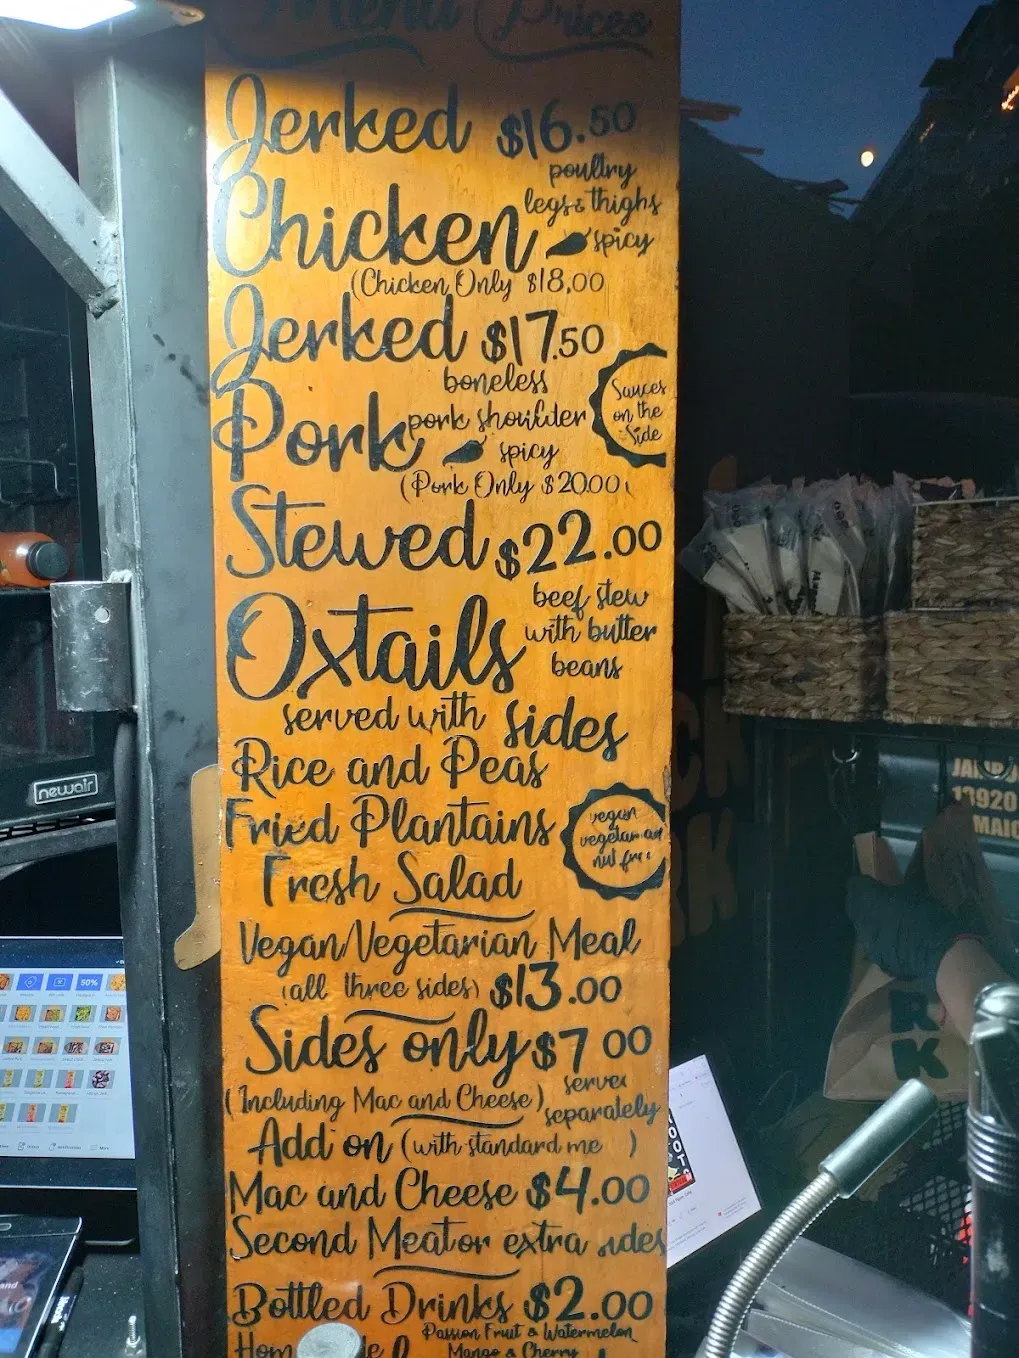 Menu Prices
Jerked $16.50
poultry
legs & thighs
Chicken spicy
(Chicken Only $18.00
Jerked $17.50
boneless
Pork pork shoulder
spicy
(Pork Only $20.00)
Sauces
on the
Side
Stewed $22.00
beef stew
Oxtails with butter
beans
served with sides
Rice and Peas
Fried Plantains
Fresh Salad
vegan
vegetarian
nut fre
Vegan/Vegetarian Meal
(all three sides) $13.00
Sides only $7 00
(Including Mac and Cheese) served
separately
Add on (with standard me )
Mac and Cheese $4.00
Second Meat or extra sides
Bottled Drinks $2.00
Passion Fruit & Watermelon
Mango & Cherry
newair
50%
13920
MAIC
RK